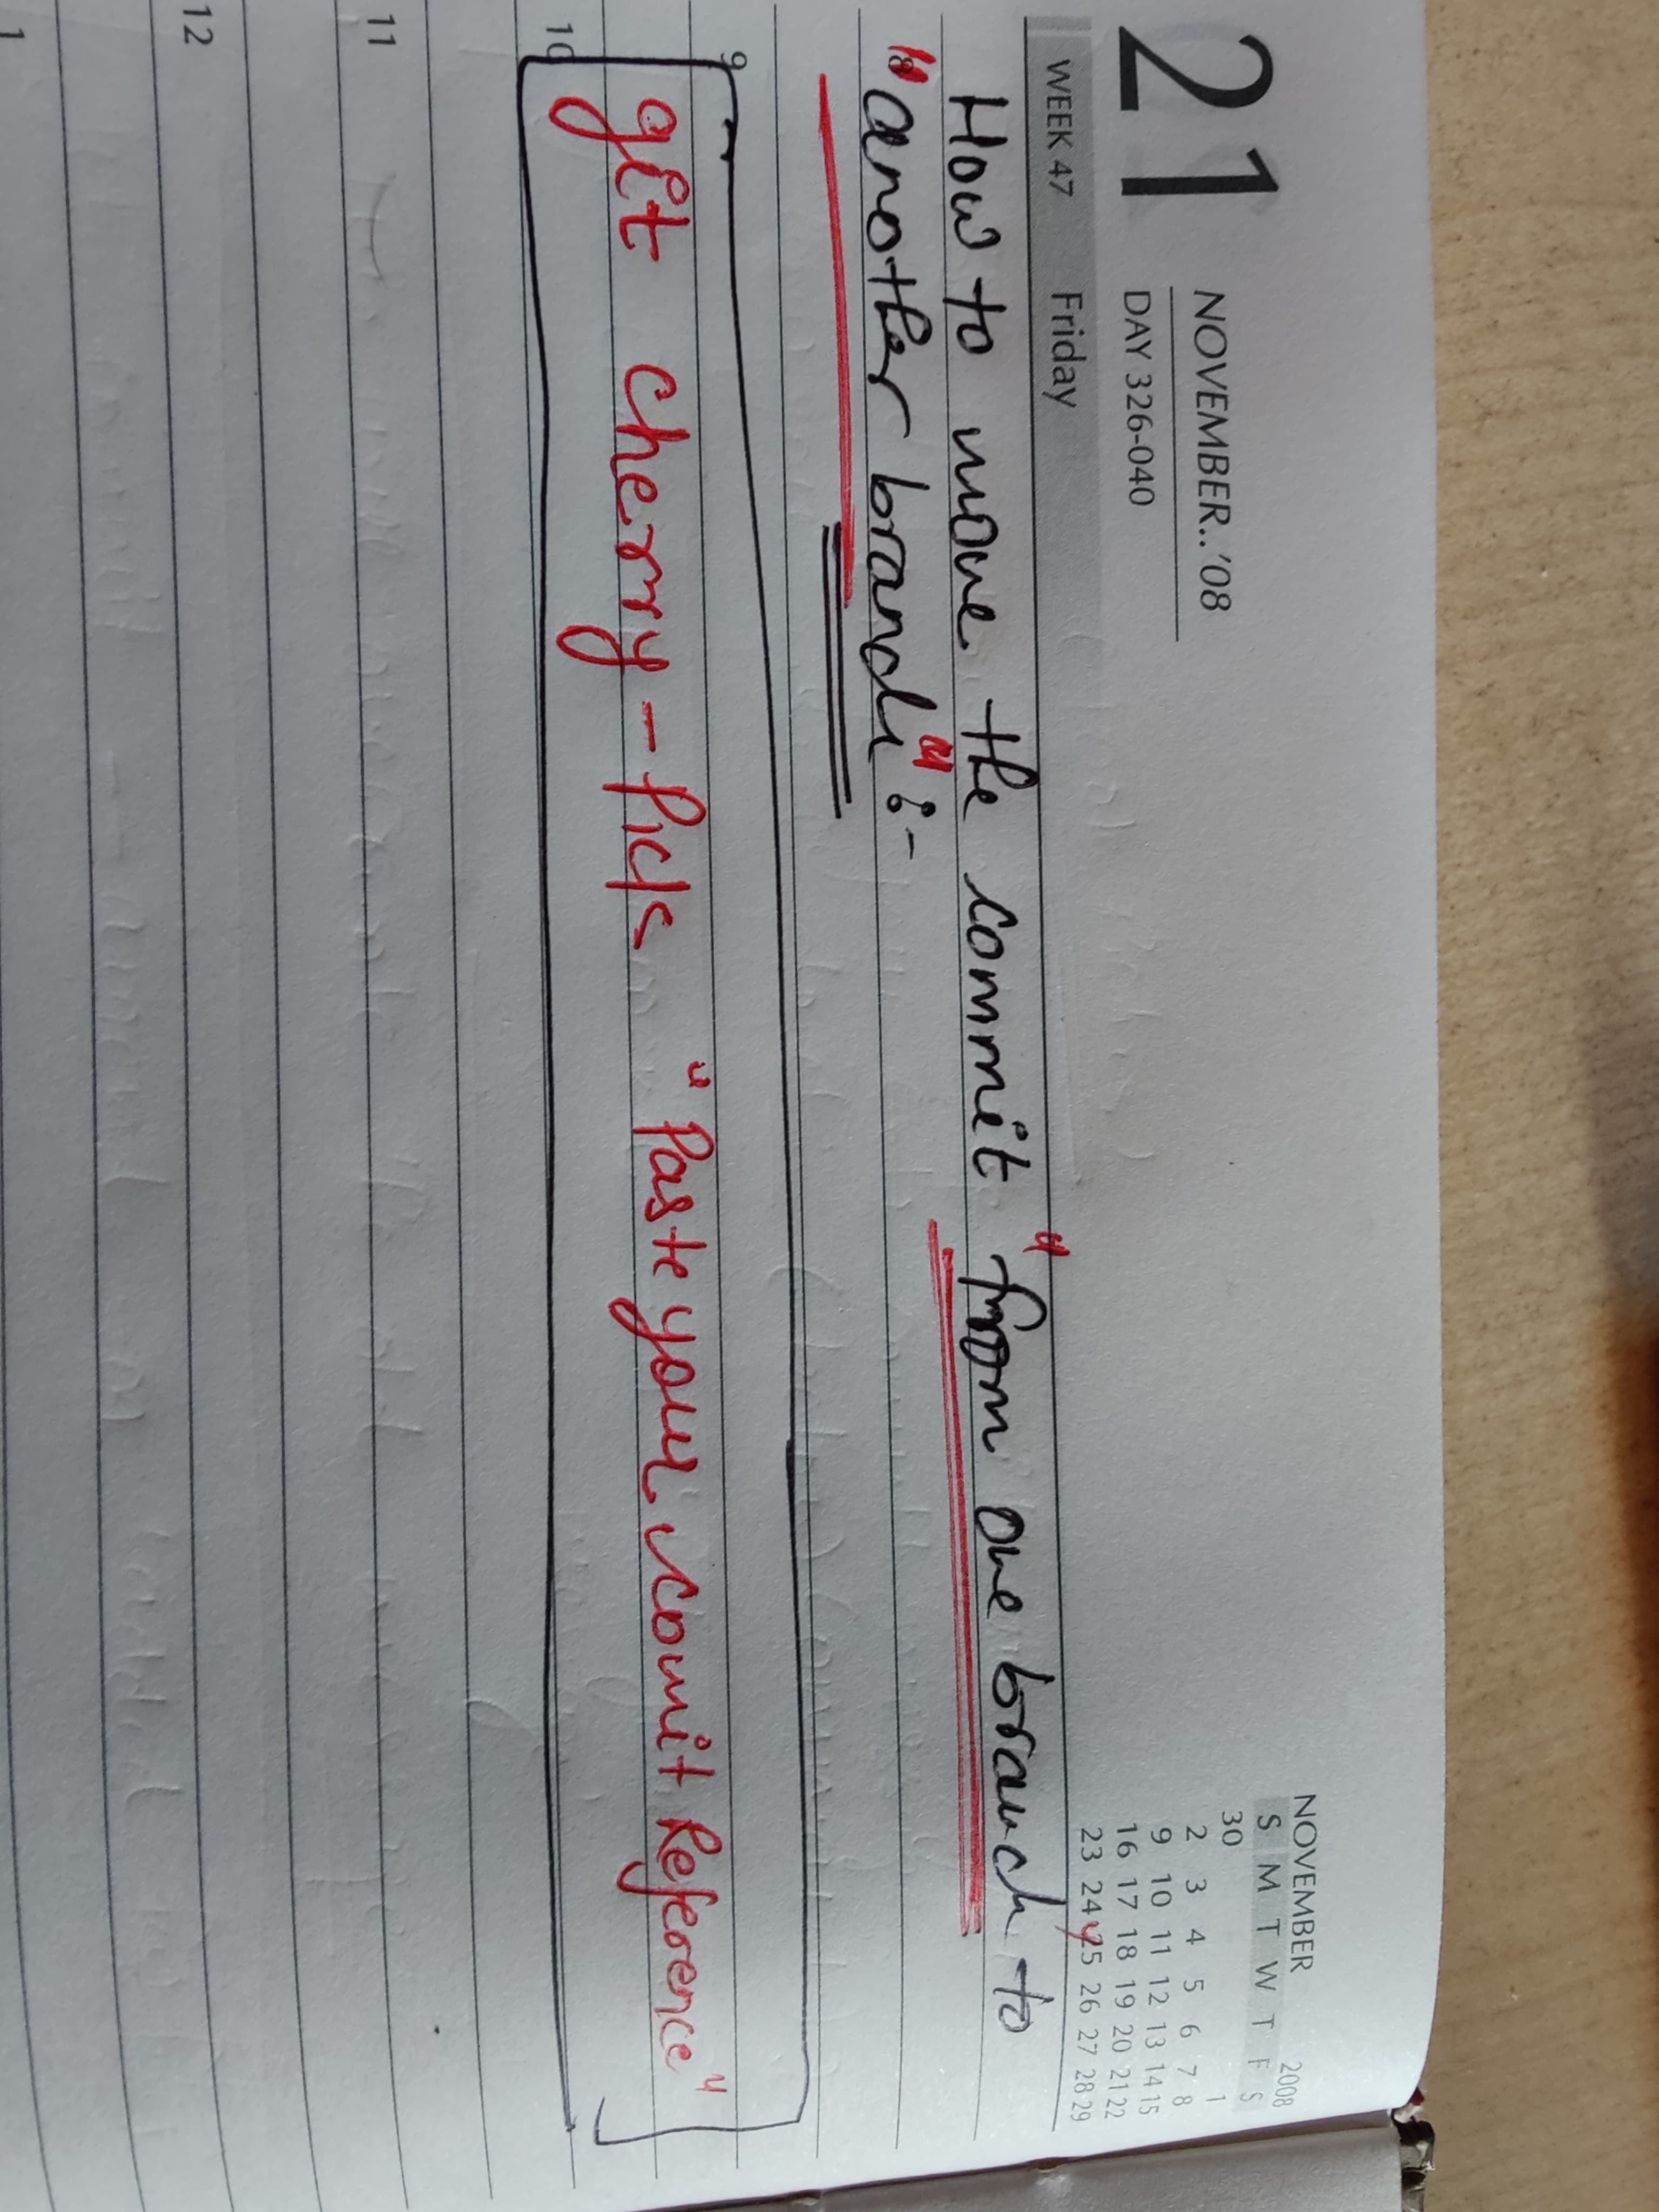 21
NOVEMBER..'08
DAY 326-040
NOVEMBER 2008
S M T W T F S
30 1
2 3 4 5 6 7 8
9 10 11 12 13 14 15
16 17 18 19 20 21 22
23 24 25 26 27 28 29
WEEK 47 Friday
How to move the commit "from one branch to"
"another branch" :-
9
git cherry-pick "Paste your commit Reference"
10
11
12
1